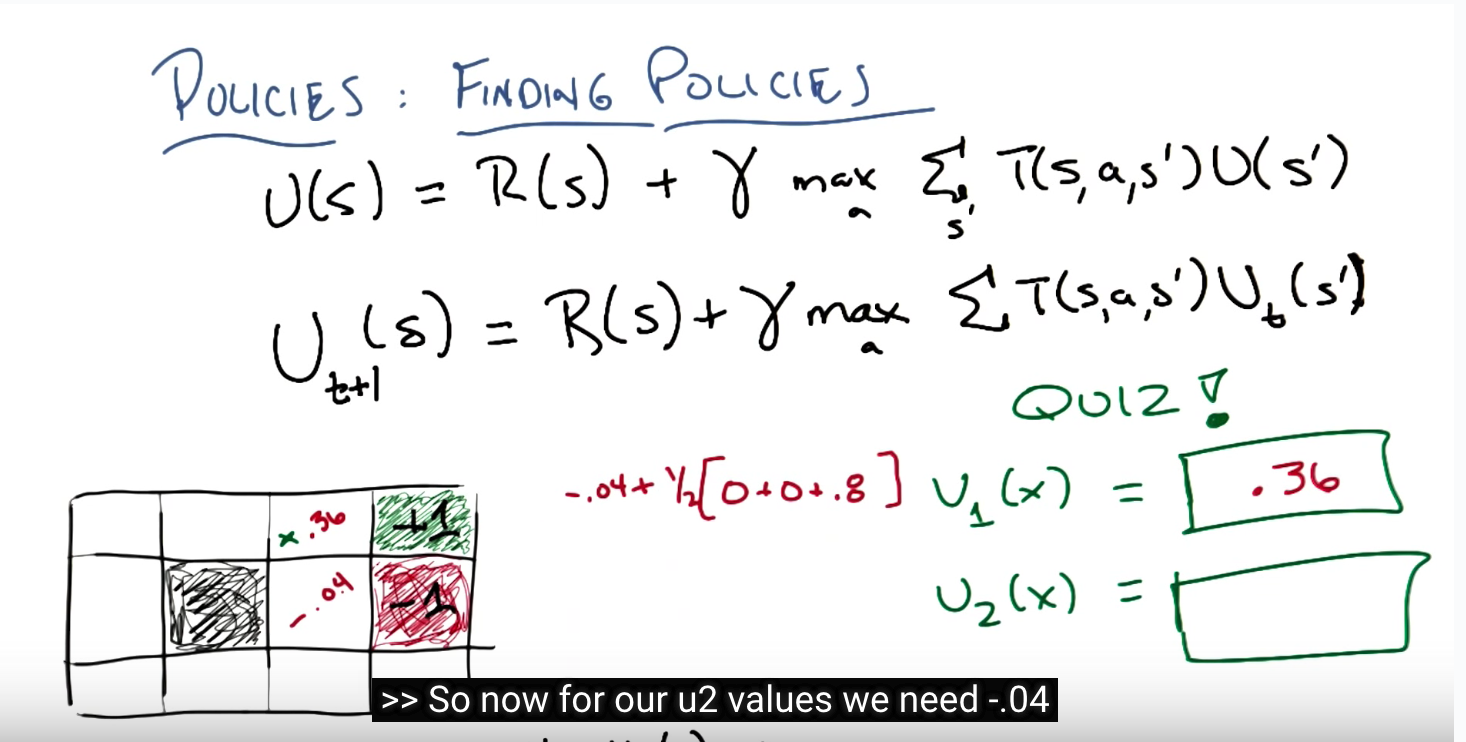 POLICIES : FINDING POLICIES
U(s) = R(s) + γ max_a Σ_s' T(s,a,s')U(s')
U_t+1(s) = R(s) + γ max_a Σ T(s,a,s')U_t(s')
QUIZ!
-.04 + 1/2[0+0+.8] U_1(x) = .36
x .36 +1
-.04 -1
U_2(x) =
>> So now for our u2 values we need -.04